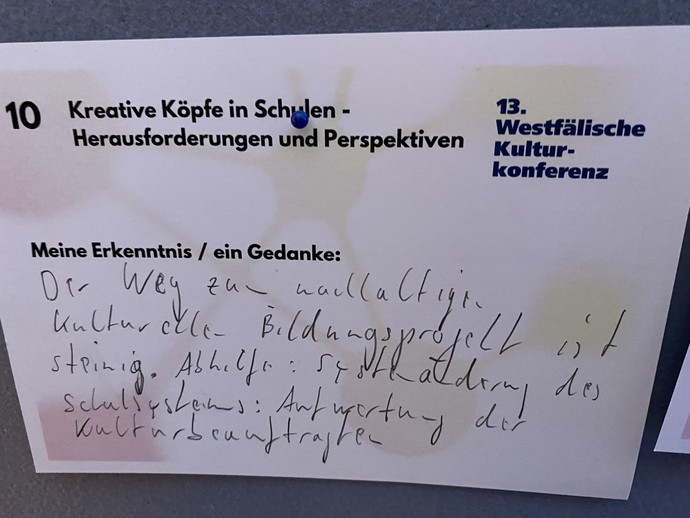 10
Kreative Köpfe in Schulen -
Herausforderungen und Perspektiven
13.
Westfälische
Kultur-
konferenz
Meine Erkenntnis / ein Gedanke:
Der Weg zum nachhaltigen
kulturellen Bildungsprojekt ist
steinig. Abhilfe: des
Schulsystems: Aufwertung der
Kulturbeauftragten